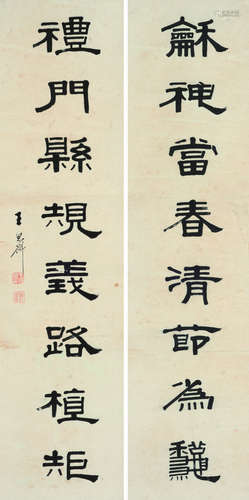 龢神當春清節為龝
禮門縣規義路植矩
王